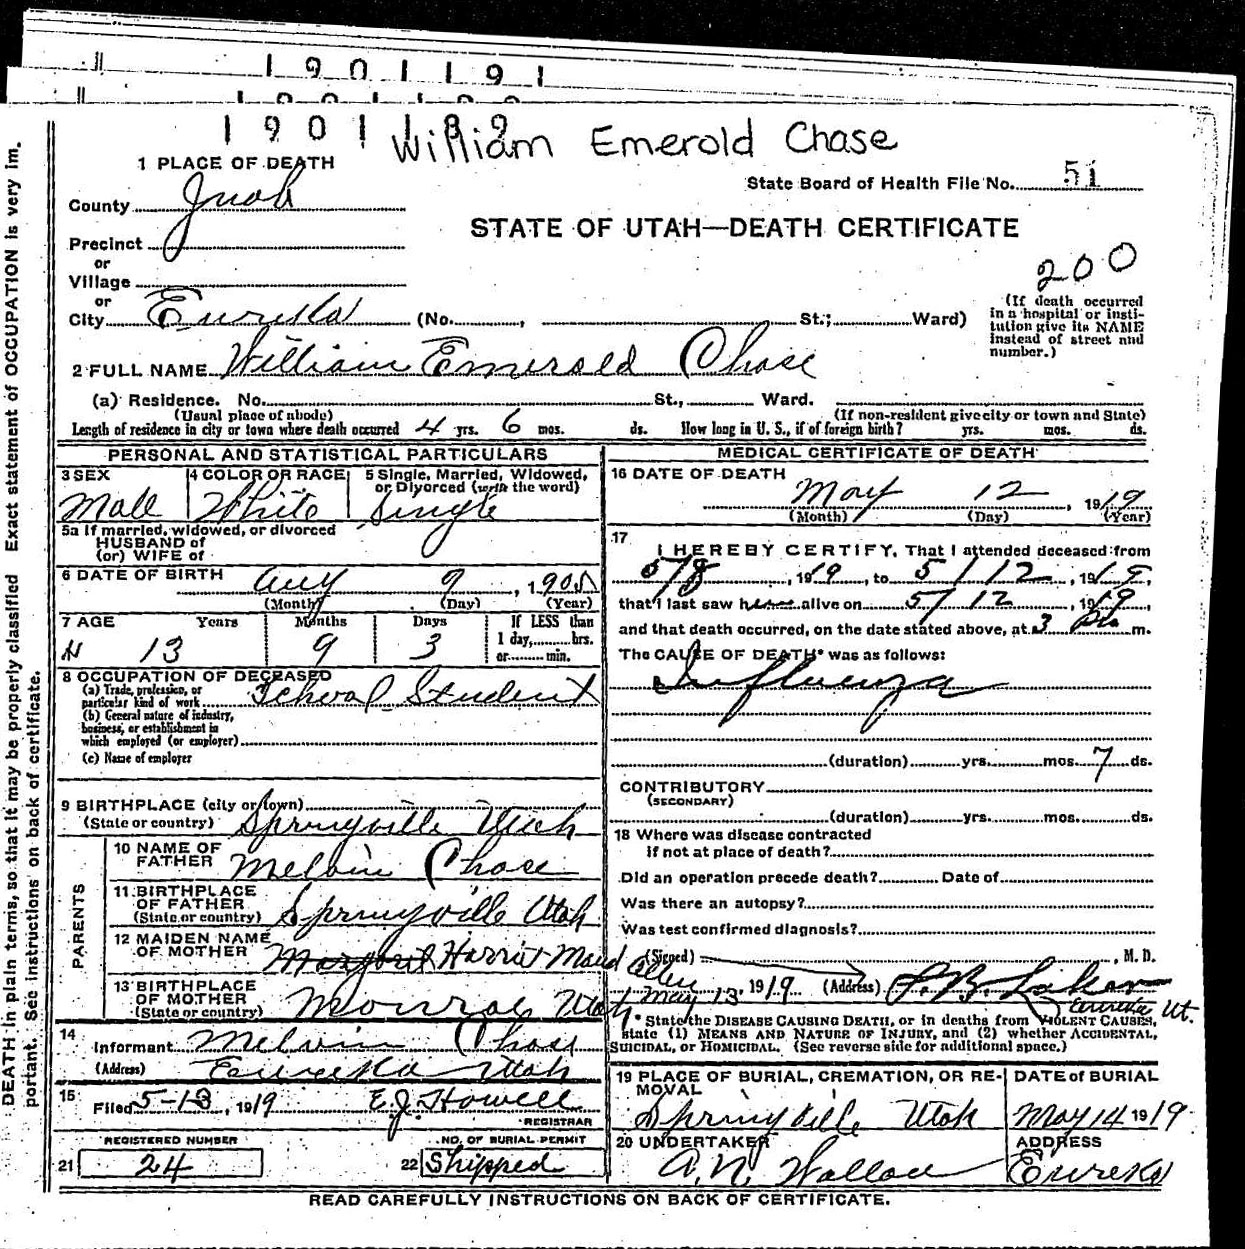 1901191
1901189
William Emerold Chase
1 PLACE OF DEATH
State Board of Health File No. 51
County Juab
STATE OF UTAH—DEATH CERTIFICATE
Precinct
or
Village
200
or
City Eureka (No. , St.; Ward)
(If death occurred in a hospital or insti-
tution give its NAME instead of street and number.)
2 FULL NAME William Emerold Chase
(a) Residence. No. St., Ward.
(Usual place of abode) (If non-resident give city or town and State)
Length of residence in city or town where death occurred 4 yrs. 6 mos. ds. How long in U. S., if of foreign birth? yrs. mos. ds.
PERSONAL AND STATISTICAL PARTICULARS
3 SEX 4 COLOR OR RACE 5 Single, Married, Widowed,
or Divorced (write the word)
Male White Single
5a If married, widowed, or divorced
HUSBAND of
(or) WIFE of
6 DATE OF BIRTH Aug 9, 1905
(Month) (Day) (Year)
7 AGE Years Months Days If LESS than
1 day, hrs.
or min.
13 9 3
8 OCCUPATION OF DECEASED
(a) Trade, profession, or
particular kind of work School Student
(b) General nature of industry,
business, or establishment in
which employed (or employer)
(c) Name of employer
9 BIRTHPLACE (city or town)
(State or country) Springville Utah
PARENTS
10 NAME OF
FATHER Melvin Chase
11 BIRTHPLACE
OF FATHER
(State or country) Springville Utah
12 MAIDEN NAME
OF MOTHER Harriet Maud Allen
13 BIRTHPLACE
OF MOTHER
(State or country) Monroe Utah
14
Informant Melvin Chase
(Address) Eureka Utah
15
Filed 5-13, 1919 E.J. Howell
REGISTRAR
REGISTERED NUMBER NO. OF BURIAL PERMIT
21 24 22 Shipped
MEDICAL CERTIFICATE OF DEATH
16 DATE OF DEATH
May 12, 1919
(Month) (Day) (Year)
17
I HEREBY CERTIFY, That I attended deceased from
5/8, 1919, to 5/12, 1919,
that I last saw h alive on 5/12, 1919,
and that death occurred, on the date stated above, at 3 Pm m.
The CAUSE OF DEATH* was as follows:
Influenza
(duration) yrs. mos. 7 ds.
CONTRIBUTORY
(SECONDARY)
(duration) yrs. mos. ds.
18 Where was disease contracted
if not at place of death?
Did an operation precede death? Date of
Was there an autopsy?
What test confirmed diagnosis?
(Signed) , M. D.
May 13, 1919 (Address)
Eureka Ut.
* State the DISEASE CAUSING DEATH, or in deaths from VIOLENT CAUSES,
state (1) MEANS AND NATURE OF INJURY, and (2) whether ACCIDENTAL,
SUICIDAL, or HOMICIDAL. (See reverse side for additional space.)
19 PLACE OF BURIAL, CREMATION, OR RE-
MOVAL
DATE of BURIAL
Springville Utah May 14 1919
20 UNDERTAKER ADDRESS
A. N. Wallace Eureka
READ CAREFULLY INSTRUCTIONS ON BACK OF CERTIFICATE.
DEATH in plain terms, so that it may be properly classified Exact statement of OCCUPATION is very im.
portant. See instructions on back of certificate.